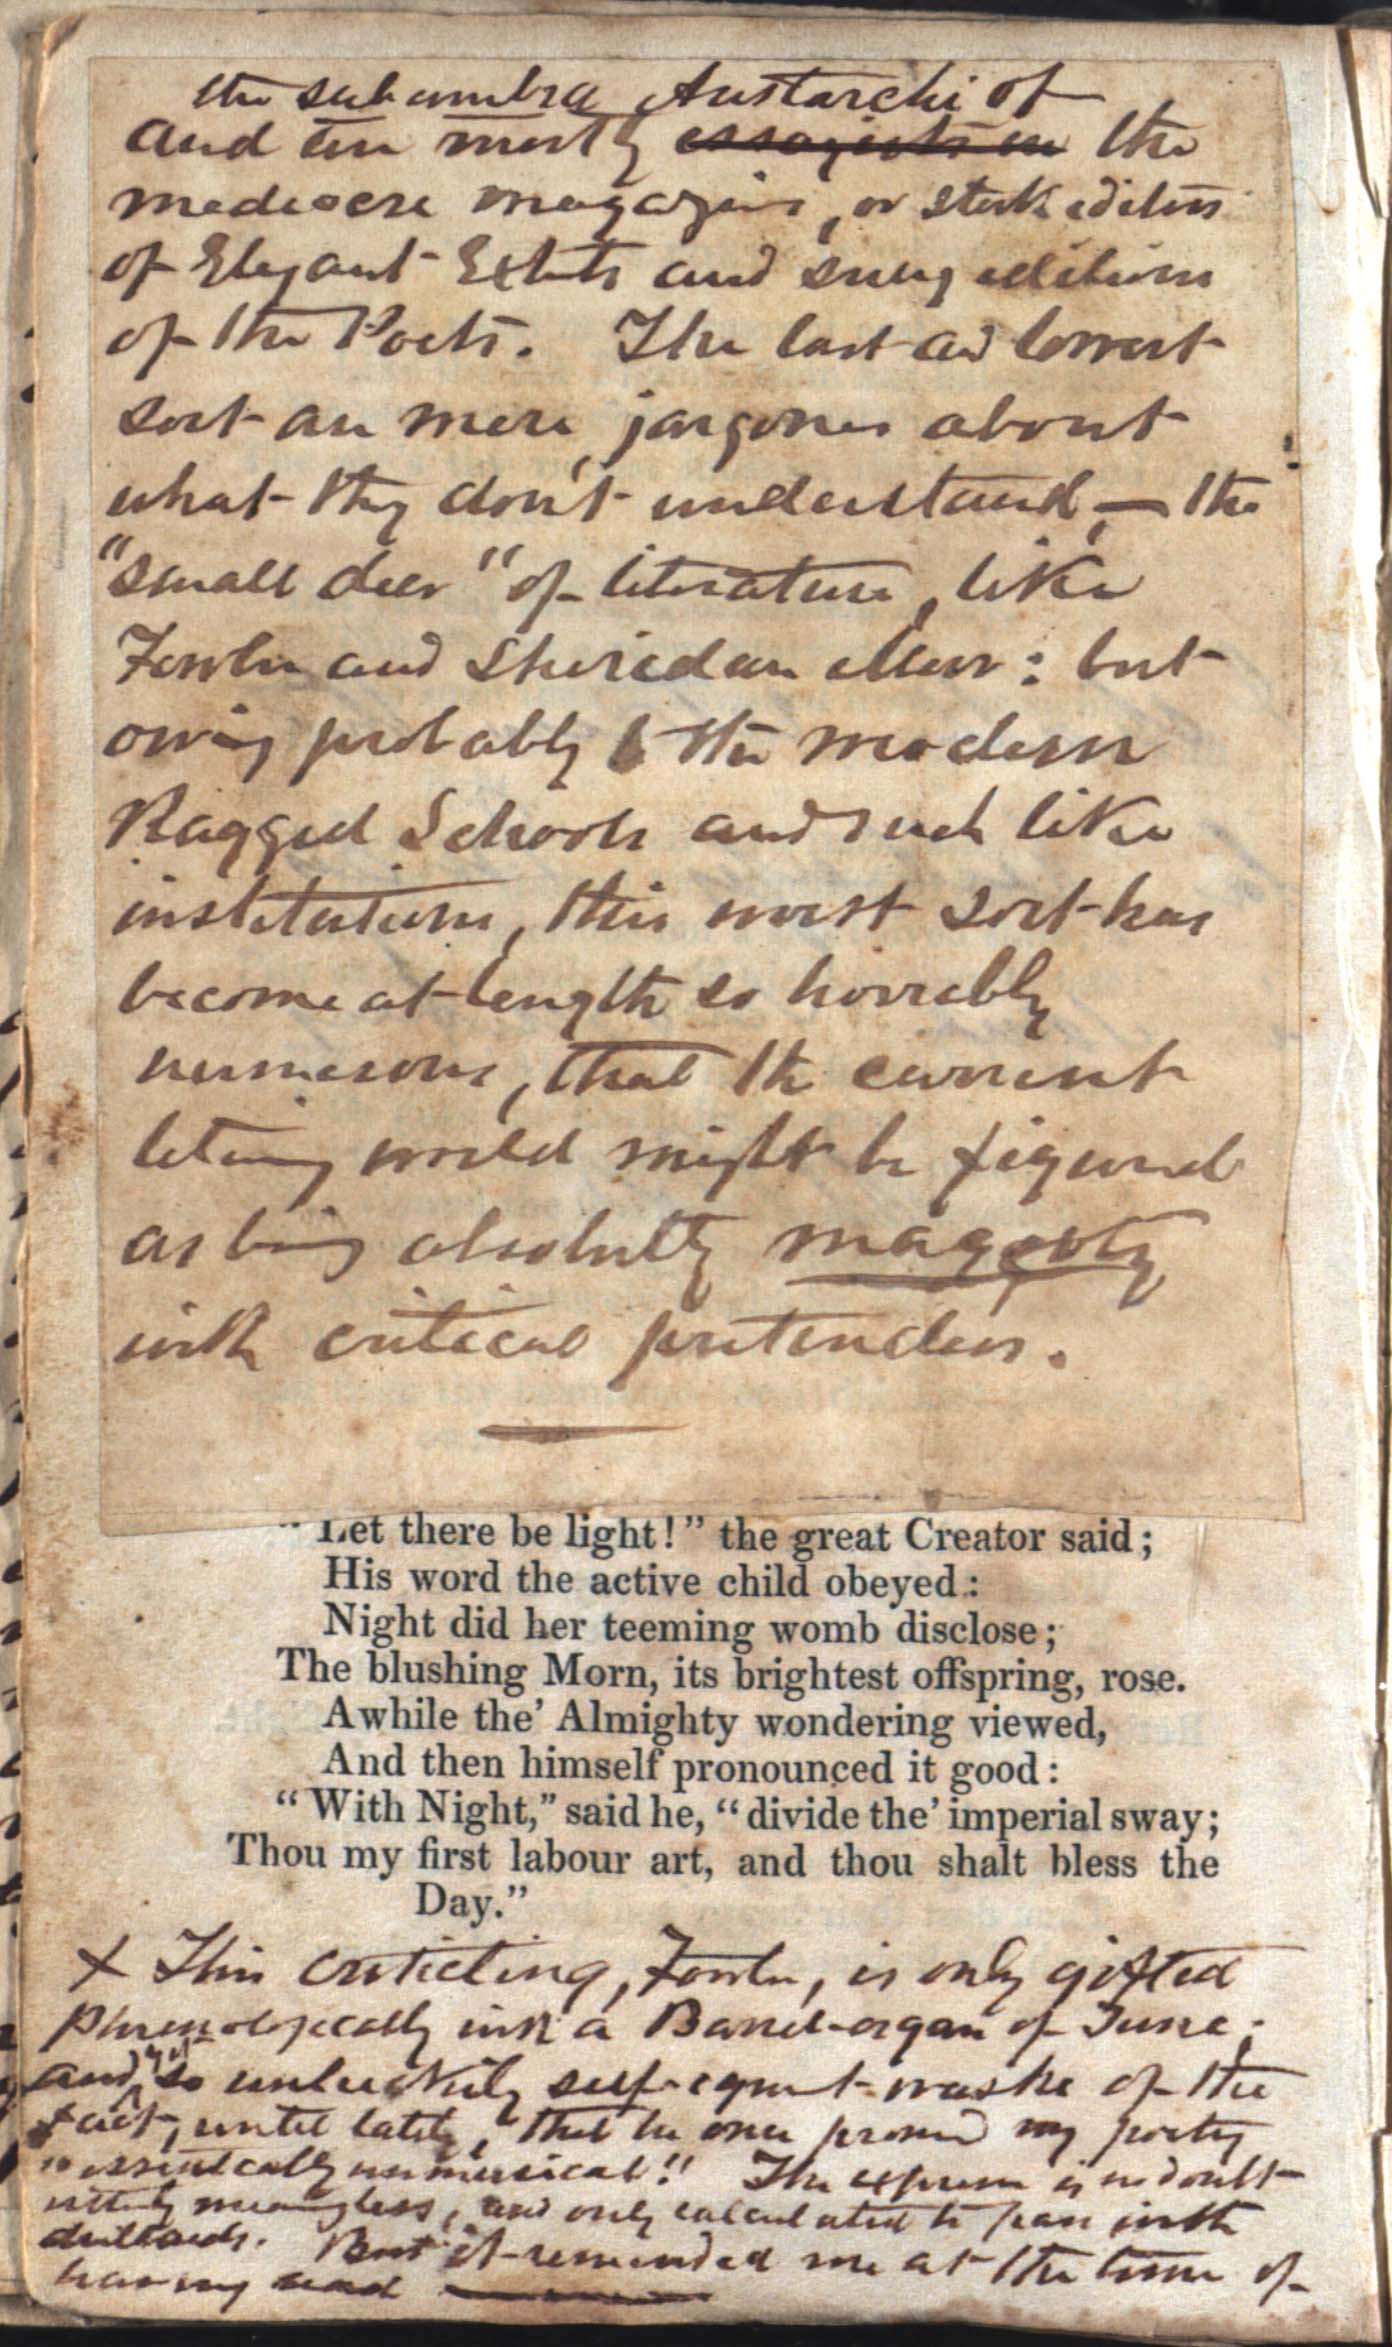 the sub umbra Aristarchi of
and are mostly essayists in the
mediocre magazines, or stock editors
of Elegant Extcts and snug editions
of the Poets. The last and lowest
sort are mere jargoners about
what they don't understand, — the
"small deer" of literature, like
Fowler and Sheridan Muir: but
owing probably to the modern
Ragged Schools and such like
institutions, this worst sort has
become at length so horribly
numerous, that the current
literary world might be figured
as being absolutely maggoty
with critical pretenders.
"Let there be light!" the great Creator said;
His word the active child obeyed:
Night did her teeming womb disclose;
The blushing Morn, its brightest offspring, rose.
Awhile the' Almighty wondering viewed,
And then himself pronounced it good:
"With Night," said he, "divide the' imperial sway;
Thou my first labour art, and thou shalt bless the
Day."
+ This criticling, Fowler, is only gifted
phrenologically with a Barrel-organ of Tune;
and yet so unluckily self-ignorant was he of the
fact, until lately, that he once pronod my poetry
"essentially unmusical!" The expression is no doubt
utterly meaningless, and only calculated to pass with
dullards. But it reminded me at the time of
having read